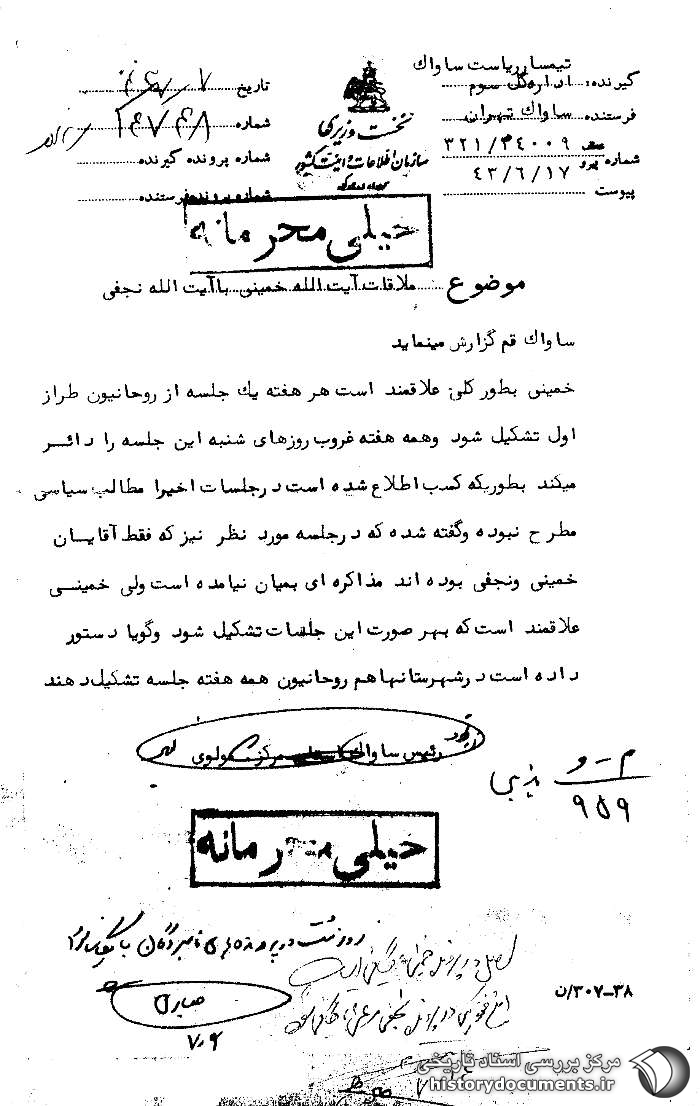 تیمسار ریاست ساواک
گیرنده: اداره کل سوم
فرستنده: ساواک تهران
شماره ۳۲۱/۳۴۰۰۹
۴۳/۶/۱۷
پیوست
نخست وزیری
سازمان اطلاعات و امنیت کشور
تاریخ
شماره
شماره پرونده گیرنده:
شماره پرونده فرستنده:
خیلی محرمانه
موضوع ملاقات آیت الله خمینی با آیت الله نجفی
ساواک قم گزارش مینماید
خمینی بطور کلی علاقمند است هر هفته یک جلسه از روحانیون طراز
اول تشکیل شود وهمه هفته غروب روزهای شنبه این جلسه را دائر
میکند بطوریکه کسب اطلاع شده است درجلسات اخیرا مطالب سیاسی
مطرح نبوده وگفته شده که درجلسه مورد نظر نیز که فقط آقایان
خمینی ونجفی بوده اند مذاکره ای بمیان نیامده است ولی خمینی
علاقمند است که بهر صورت این جلسات تشکیل شود وگویا دستور
داده است درشهرستانها هم روحانیون همه هفته جلسه تشکیل دهند
رئیس ساواک مرکز مولوی
م - و
۹۵۹
خیلی محرمانه
صابری
۷ر۶
۳۰۷-۳۸/ن
مرکز بررسی اسناد تاریخی
historydocuments.ir